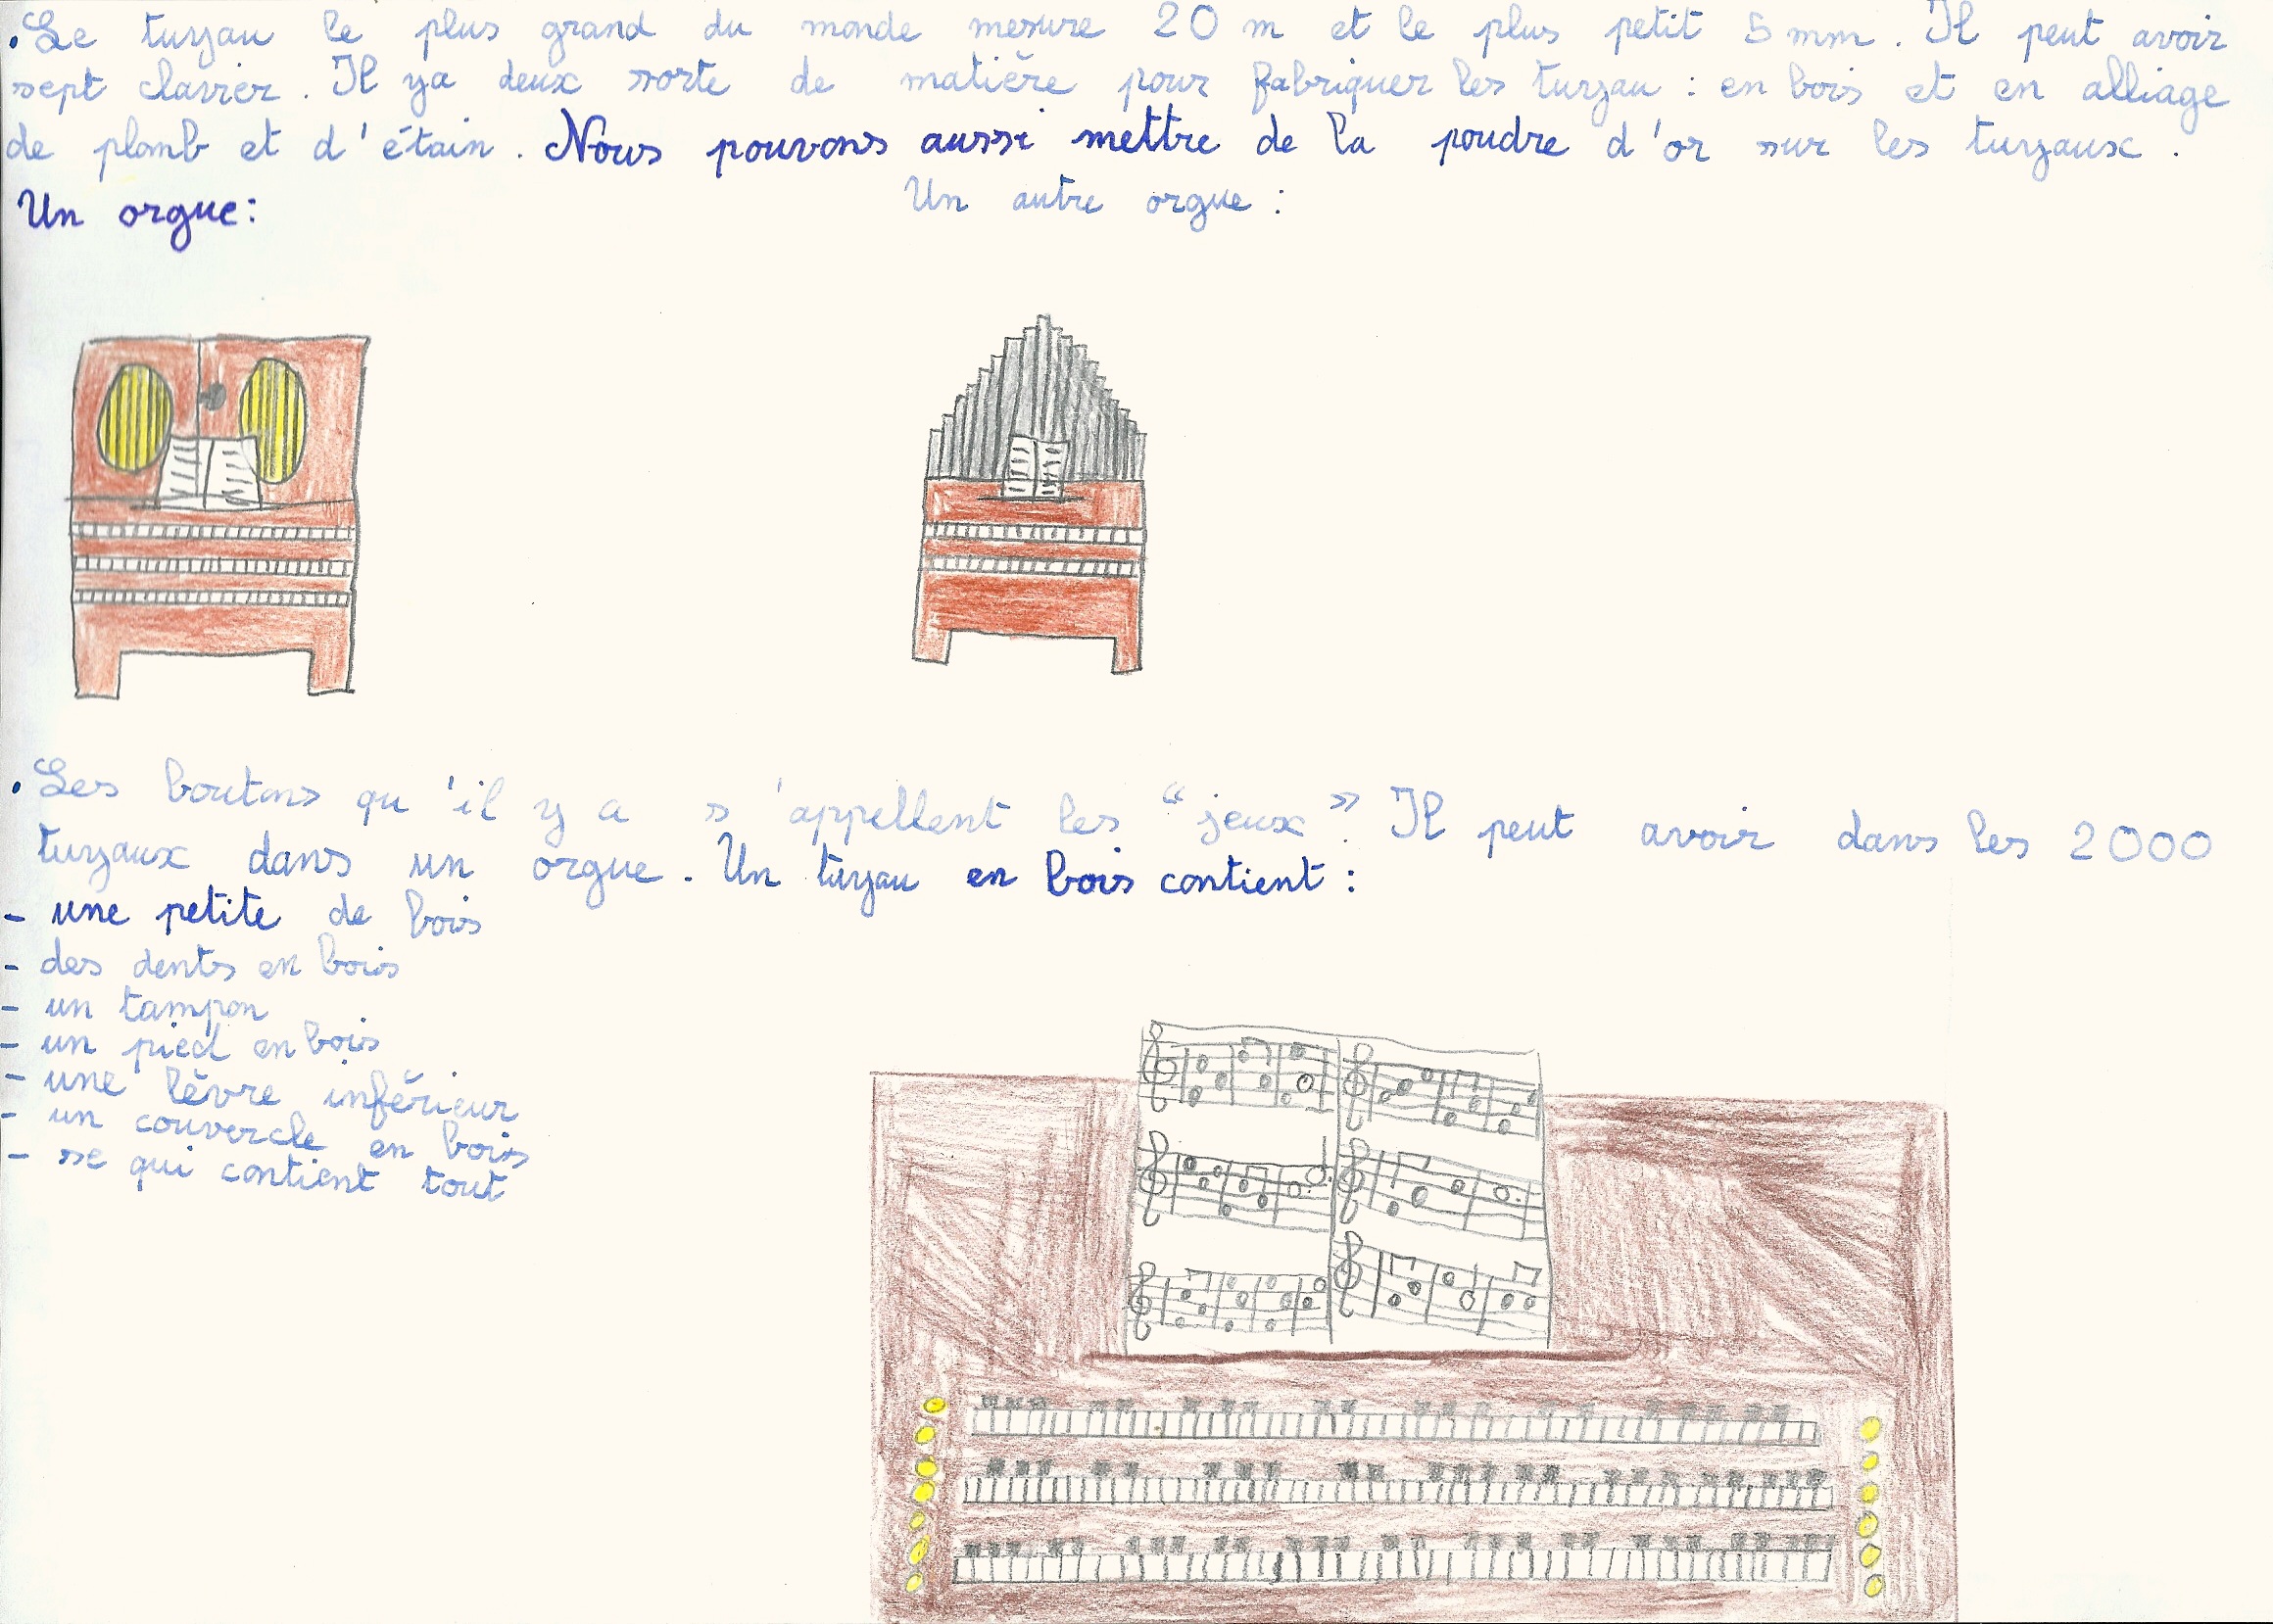 • Le tuyau le plus grand du monde mesure 20 m et le plus petit 5 mm. Il peut avoir
sept clavier. Il ya deux sorte de matière pour fabriquer les tuyau : en bois et en alliage
de plomb et d'étain. Nous pouvons aussi mettre de la poudre d'or sur les tuyaux.
Un orgue:
Un autre orgue :
• Les boutons qu'il y a s'appellent les "jeux". Il peut avoir dans les 2000
tuyaux dans un orgue. Un tuyau en bois contient :
- une petite de bois
- des dents en bois
- un tampon
- un pied en bois
- une lèvre inférieur
- un couvercle en bois
- se qui contient tout